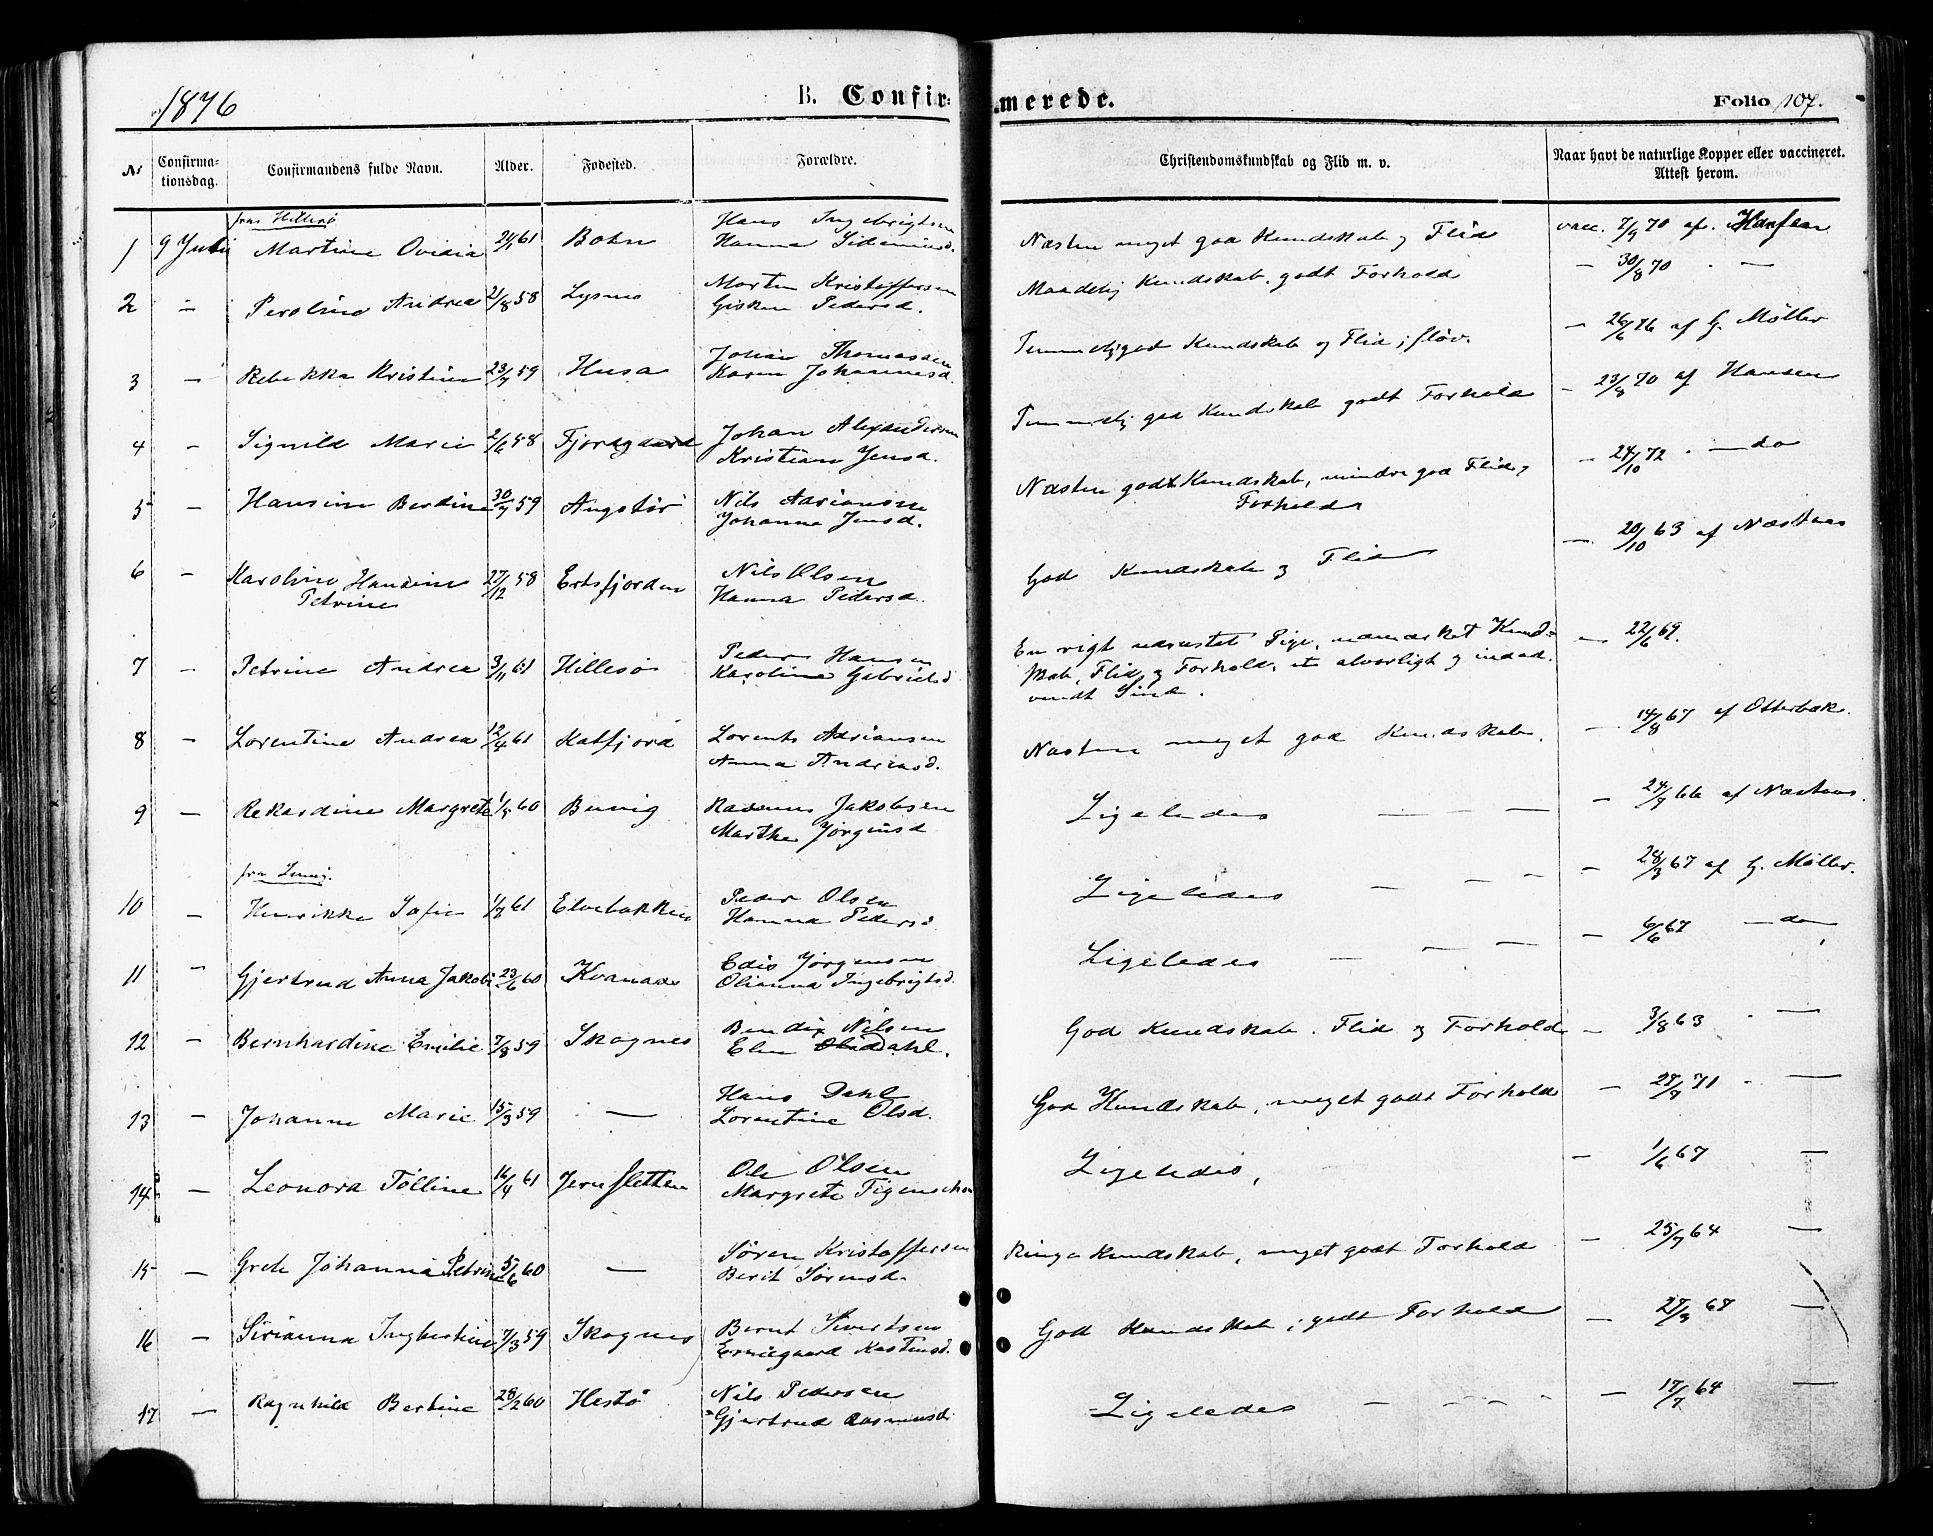 1876
B. Confir-
merede.
Folio 107.
No
Confirma-
tionsdag.
Confirmandens fulde Navn.
Alder.
Fødested.
Forældre.
Christendomskundskab og Flid m. v.
Naar havt de naturlige Kopper eller vaccineret.
Attest herom.
fra Hillesø
1 9 Juli Martine Ovidia 61 Botn Hans Ingebrigtsen
Hanna
Næsten meget god Kundskab og Flid vacc. 7/9 70 af
2 — Andrea 2/8 58 Lysnes Morten Kristoffersen
Pedersd.
Maadelig Kundskab, godt Forhold — 30/8 70 . —
3 — Rebekka Kristine 23/7 59 Husa Johan Thomassen
Karen Johannesd.
Temmelig god Kundskab og Flid; sløv. — 26/6 76 af G. Møller
4 — Signild Marie 2/6 58 Fjordgaard Johan Alexandersen
Kristian Jensd.
Temmelig god Kundskab godt Forhold — 23/8 70 af Hansen
5 — Hansine Berdine 30/7 59 Angstør Nils Adriansen
Johanna Jensd.
Næsten godt Kundskab, mindre god Flid og
Forhold
— 24/10 72 . — do
6 — Karoline Hansine
Petrine
27/12 58 Ersfjorden Nils Olsen
Hanna Pedersd.
God Kundskab og Flid — 20/10 63 af Næstaas
7 — Petrine Andrea 3/11 61 Hillesø Peder Hansen
Karoline Gabrielsd
En rigt udrustet Pige, udmærket Kund-
skab, Flid og Forhold, et alvorligt og indad-
vendt Sind.
— 22/6 69.
8 — Lorentine Andrea 12/4 61 Katfjord Lorents Adriansen
Anna Andreasd.
Næsten meget god Kundskab. — 14/8 67 af Otterbek.
9 — Rekardine Margrete 60 Buvig Rasmus Jakobsen
Marthe Jørgensd
Ligeledes — — — — 24/9 66 af Næstaas.
fra Lenvig.
10 — Henrikke Sofie 61 Elvebakken Peder Olsen
Hanna Pedersd
Ligeledes — — — — 28/3 67 af G. Møller.
11 — Gjertrud Anna Jakobi 23/6 60 Kvanaas Edis Jørgensen
Olianna Ingebrigtsd.
Ligeledes — — — — 6/6 67 — do
12 — Bernhardine Emilie 7/8 59 Skognes Bendix Nilsen
Elen Dahl.
God Kundskab. Flid og Forhold — 3/8 63 . —
13 — Johanne Marie 15/3 59 — Hans Dahl
Lorentine Olsd.
God Kundskab, meget godt Forhold — 27/7 71 . —
14 — Leonora Tølline 16/4 61 Jernsletten Ole Olsen
Margrete Figenschou
Ligeledes, — 1/6 67 —
15 — Grete Johanna Petrine 5/6 60 — Søren Kristoffersen
Berit Sørensd.
Ringe Kundskab, meget godt Forhold — 25/7 64 —
16 — Sirianna Ingbertine 7/3 59 Skognes Bernt Sivertsen
Ermegaard Kastensd.
God Kundskab; godt Forhold — 68 —
17 — Ragnhild Bertine 28/2 60 Hestø Nils Pedersen
Gjertrud Rasmusd.
Ligeledes — — — — 17/7 64 —